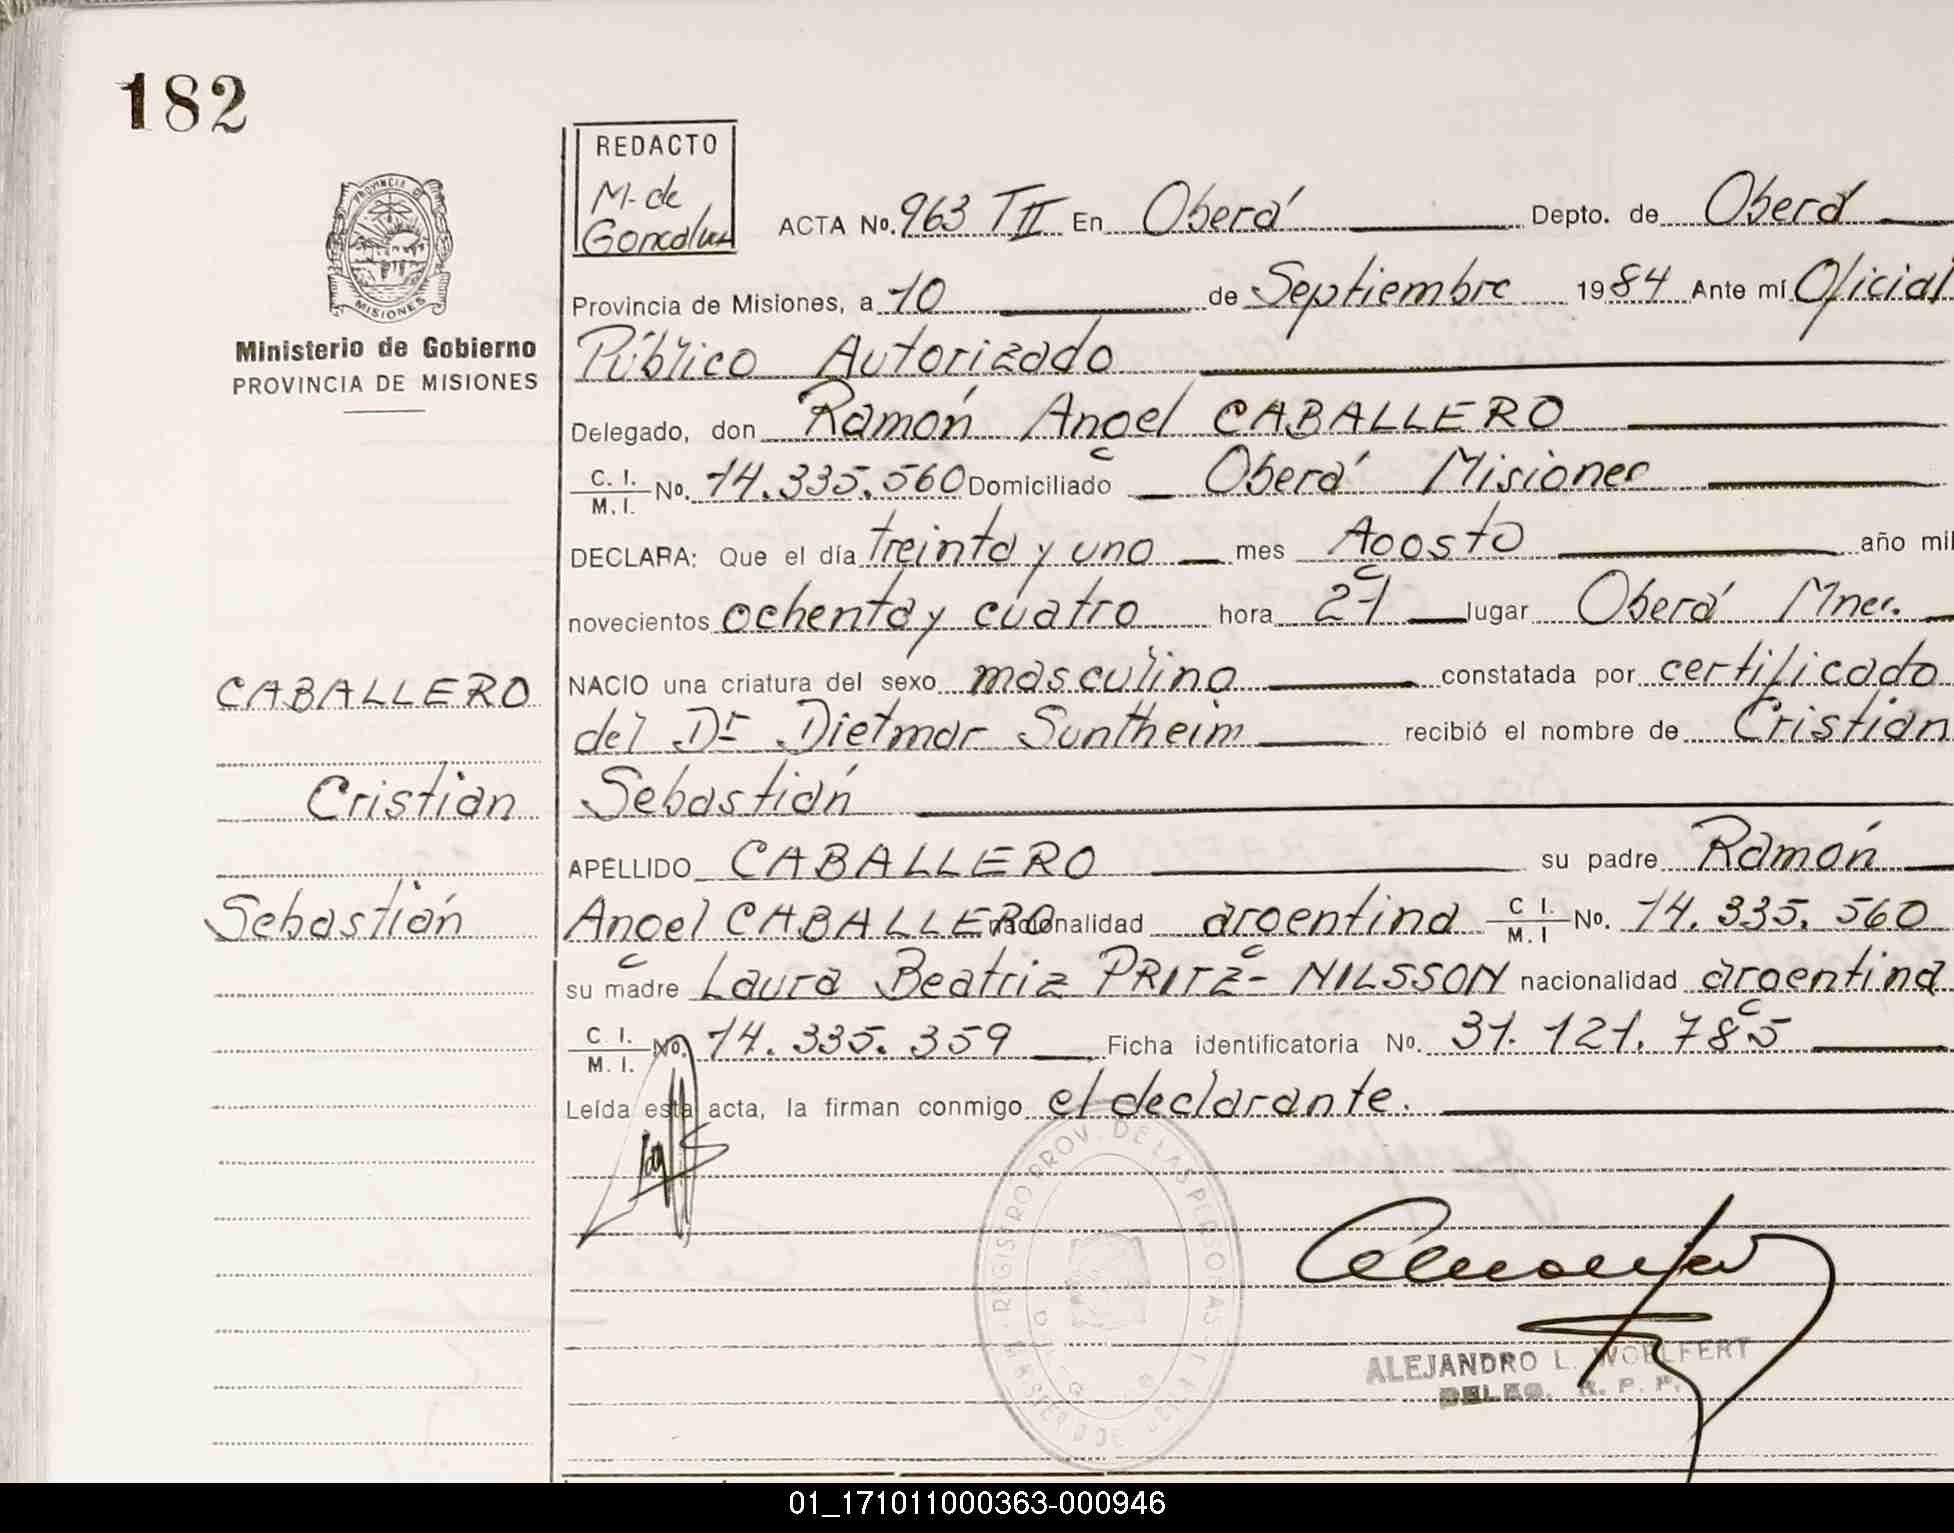 182
REDACTO
M. de
Goncalves
PROVINCIA DE
MISIONES
Ministerio de Gobierno
PROVINCIA DE MISIONES
ACTA No. 963 T II En Oberá Depto. de Oberá
Provincia de Misiones, a 10 de Septiembre 1984 Ante mí Oficial
Público Autorizado
Delegado, don Ramón Angel CABALLERO
C. I. / M. I. No. 14.335.560 Domiciliado Oberá Misiones
DECLARA: Que el día treinta y uno mes Agosto año mil
novecientos ochenta y cuatro hora 21 lugar Oberá Mnes.
CABALLERO
NACIO una criatura del sexo masculino constatada por certificado
del Dr Dietmar Suntheim recibió el nombre de Cristian
Cristian
Sebastián
APELLIDO CABALLERO su padre Ramón
Sebastián
Angel CABALLERO nacionalidad argentina C I. / M. I No. 14.335.560
su madre Laura Beatriz PRITZ-NILSSON nacionalidad argentina
C I. / M. I. No. 14.335.359 Ficha identificatoria No. 31.121.785
Leída esta acta, la firman conmigo el declarante.
REGISTRO PROV. DE LAS PERSONAS
ALEJANDRO L. WOELFERT
DELEG. R. P. P.
01_171011000363-000946